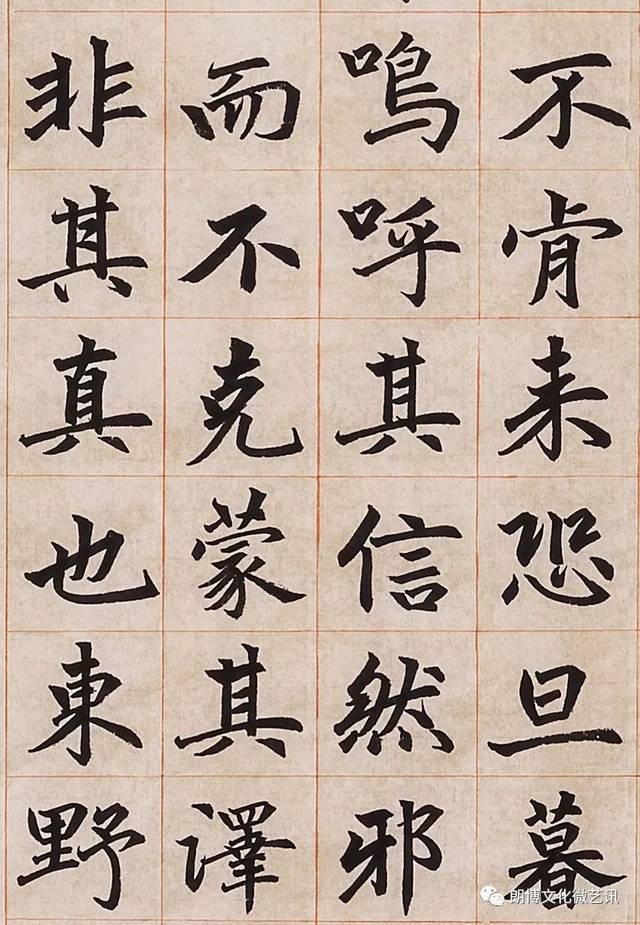 不肯来恐旦暮
嗚呼其信然邪
而不克蒙其澤
非其真也東野
朗博文化微艺讯